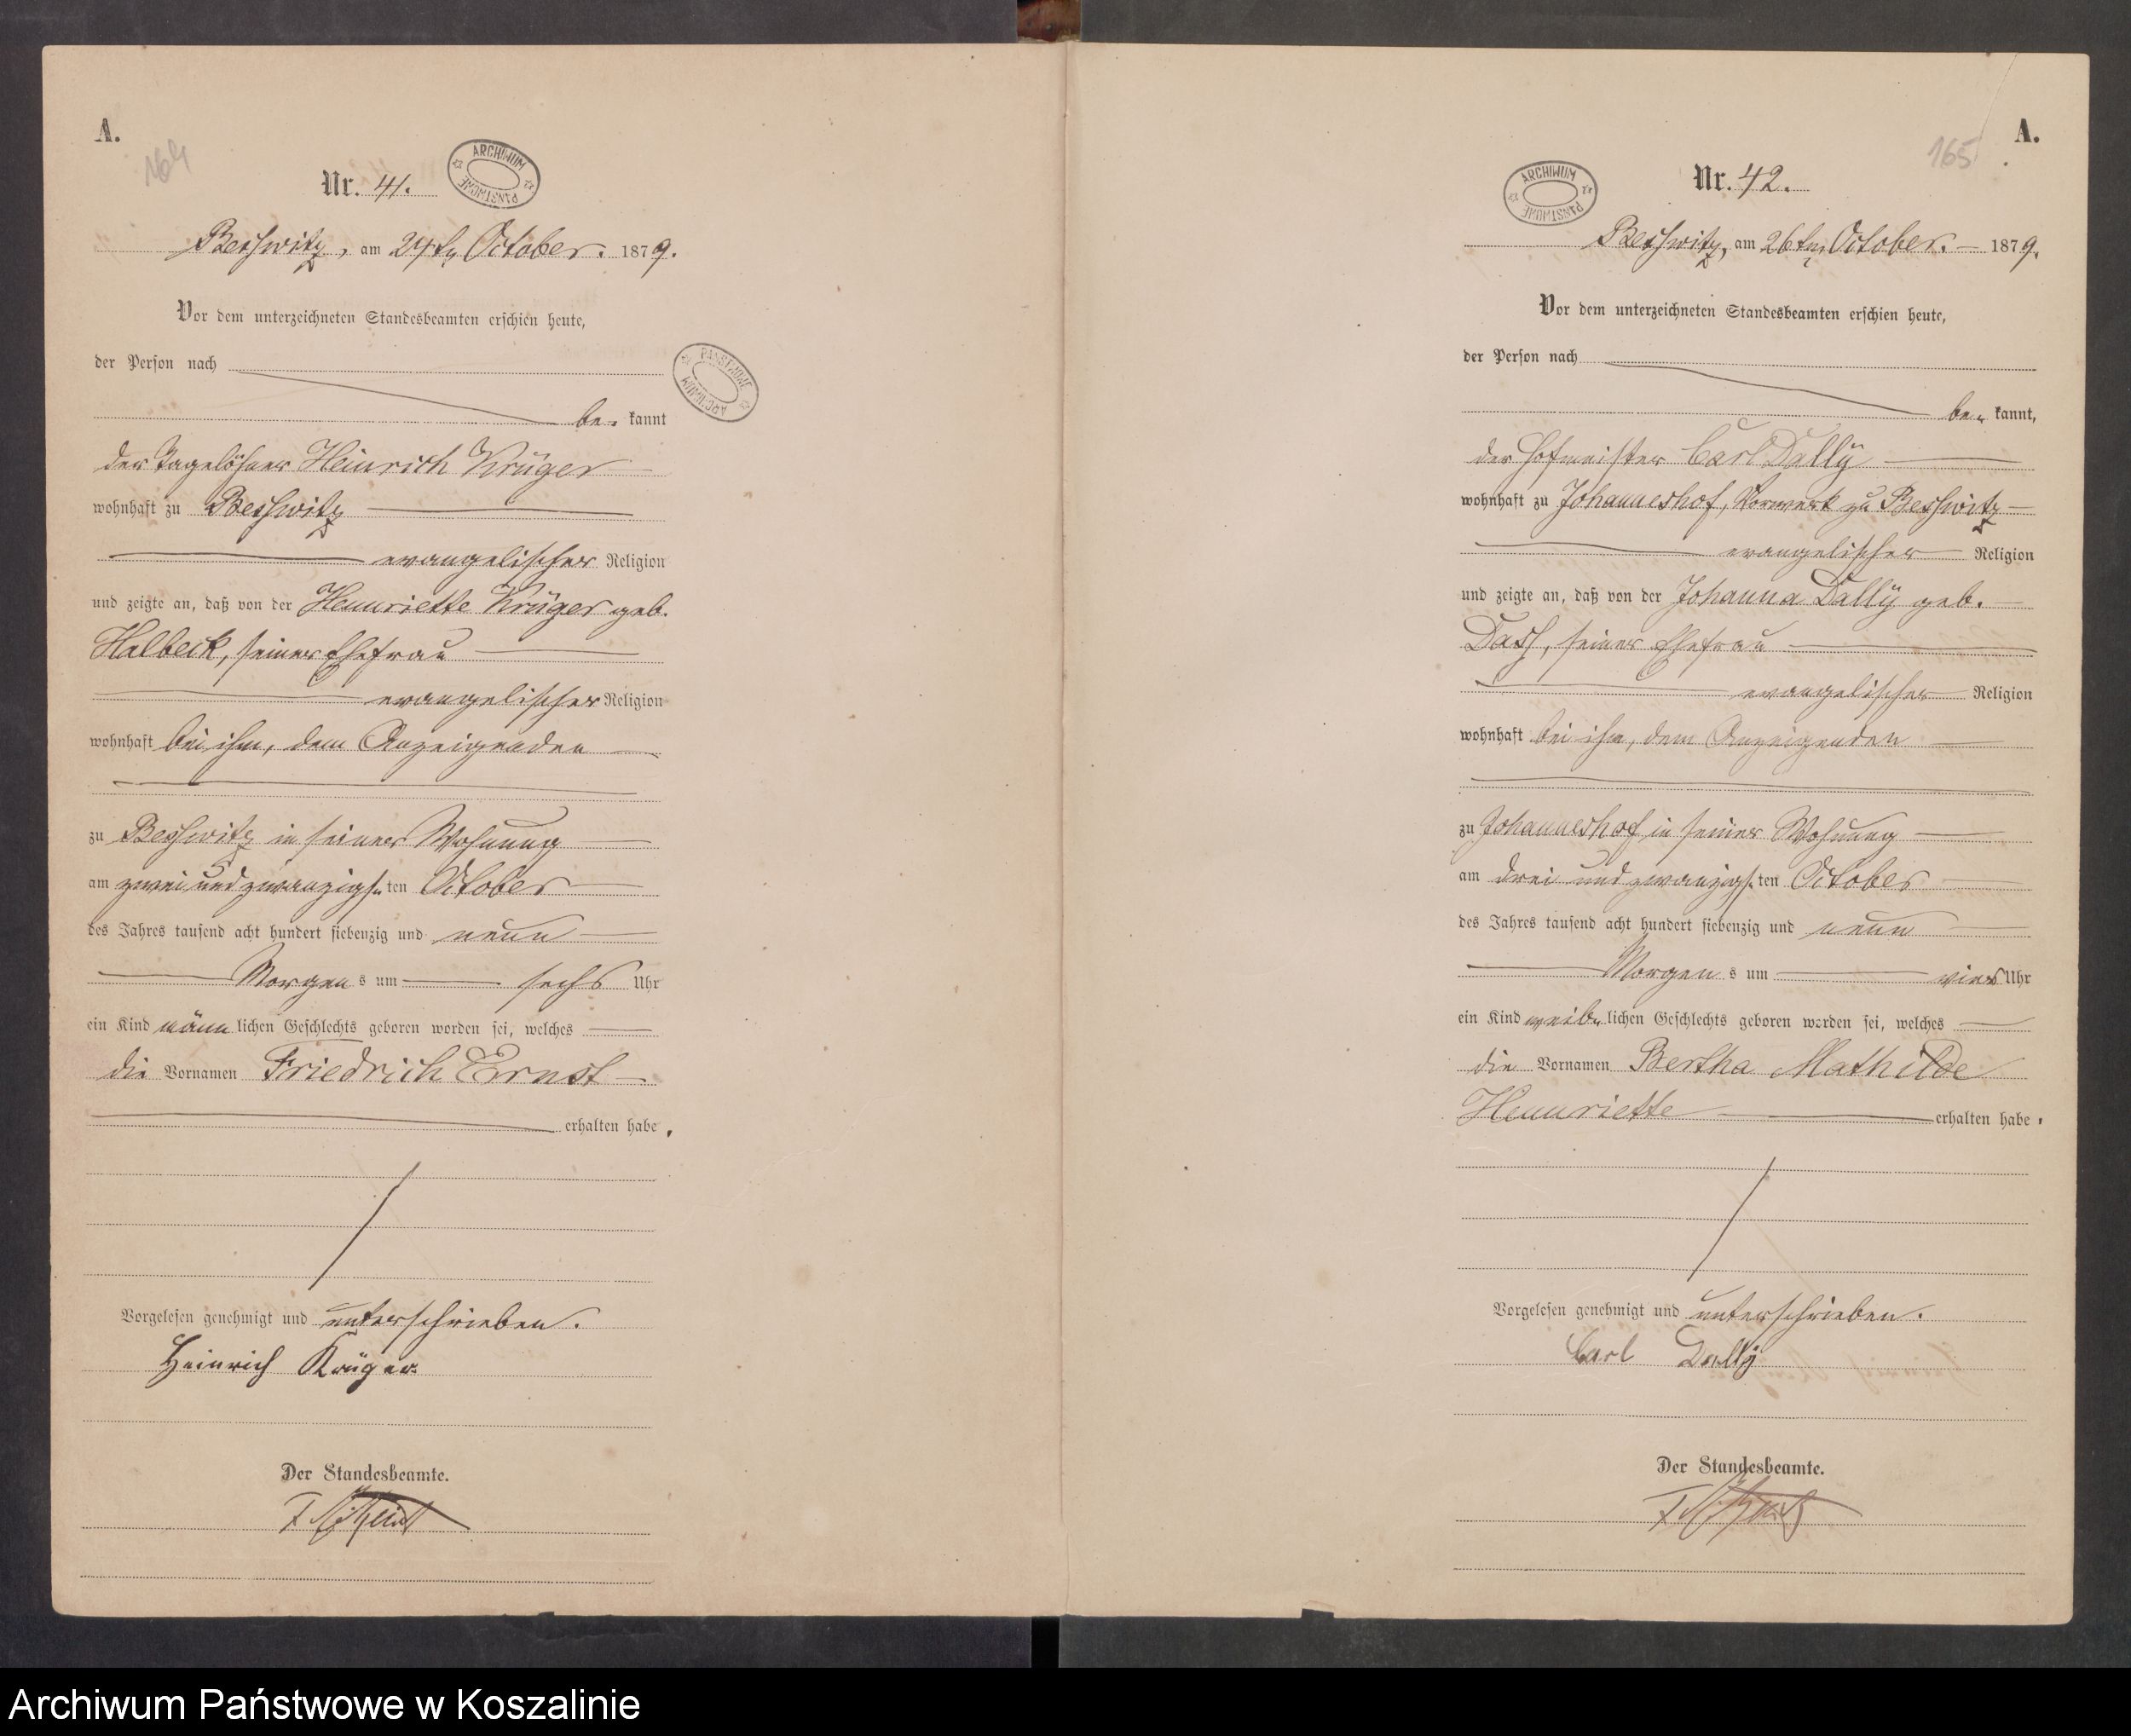 A.
164
Nr. 41.
ARCHIWUM PAŃSTWOWE
Besswitz, am 24ten October. 1879.
Vor dem unterzeichneten Standesbeamten erschien heute,
der Person nach
PAŃSTWOWE ARCHIWUM
be- kannt
der Tagelöhner Heinrich Krüger
wohnhaft zu Besswitz
evangelischer Religion
und zeigte an, daß von der Hennriette Krüger geb.
Halbeck, seiner Ehefrau
evangelischer Religion
wohnhaft bei ihm, dem Anzeigenden
zu Besswitz in seiner Wohnung
am zwei und zwanzigsten October
des Jahres tausend acht hundert siebenzig und neun
Morgens um sechs Uhr
ein Kind männlichen Geschlechts geboren worden sei, welches
die Vornamen Friedrich Ernst
erhalten habe.
Vorgelesen genehmigt und unterschrieben.
Heinrich Krüger
Der Standesbeamte.
A.
165
Nr. 42.
ARCHIWUM PAŃSTWOWE
Besswitz, am 26ten October. 1879.
Vor dem unterzeichneten Standesbeamten erschien heute,
der Person nach
be- kannt,
der Hofmeister Carl Dally
wohnhaft zu Johanneshof, Vorwerk zu Besswitz
evangelischer Religion
und zeigte an, daß von der Johanna Dally geb.
Dass, seiner Ehefrau
evangelischer Religion
wohnhaft bei ihm, dem Anzeigenden
zu Johanneshof in seiner Wohnung
am drei und zwanzigsten October
des Jahres tausend acht hundert siebenzig und neun
Morgens um vier Uhr
ein Kind weiblichen Geschlechts geboren worden sei, welches
die Vornamen Bertha Mathilde
Hennriette erhalten habe.
Vorgelesen genehmigt und unterschrieben.
Carl Dally
Der Standesbeamte.
Archiwum Państwowe w Koszalinie